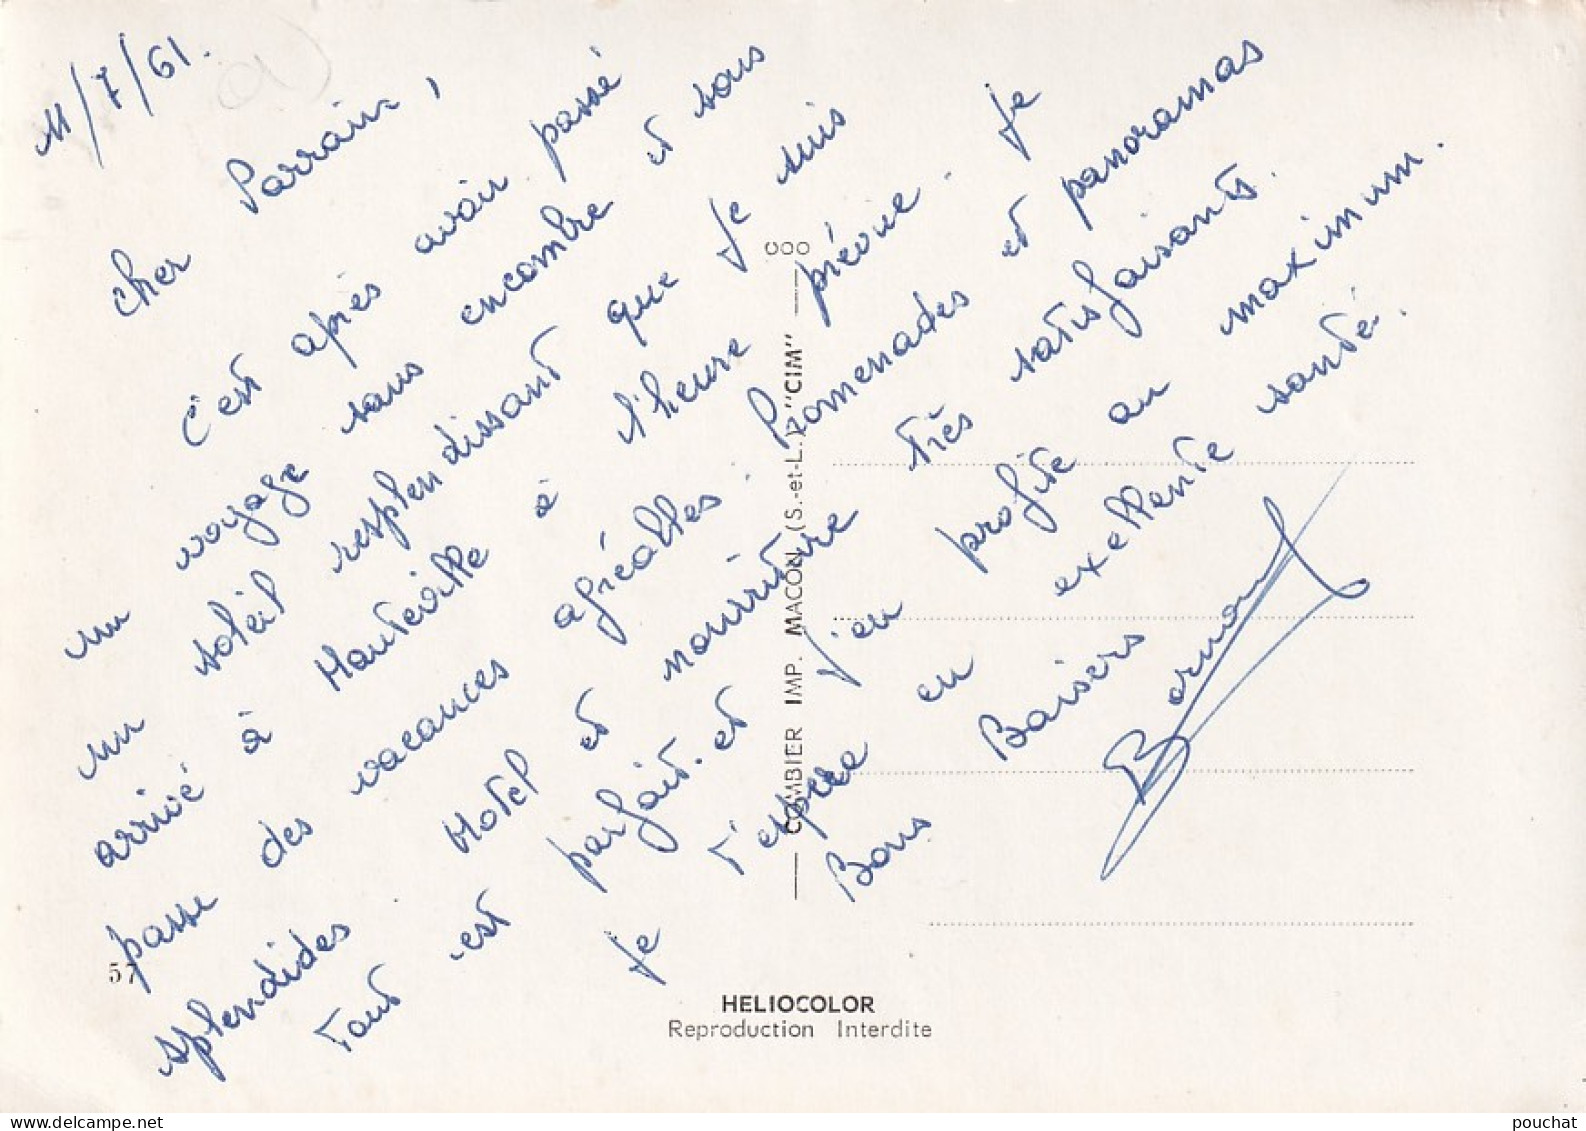 11/7/61.
Cher Parrain,
C'est après avoir passé
un voyage sans encombre et sous
un soleil resplendissant que je suis
arrivé à Hauteville à l'heure prévue. Je
passe des vacances agréables. Promenades et panoramas
splendides. Hotel et nourriture très satisfaisants.
Tout est parfait. et j'en profite au maximum.
Je t'espere en exellente santé.
Bons Baisers
Bernard
COMBIER IMP. MACON (S.-et-L.) "CIM"
57
HELIOCOLOR
Reproduction Interdite
pouchat